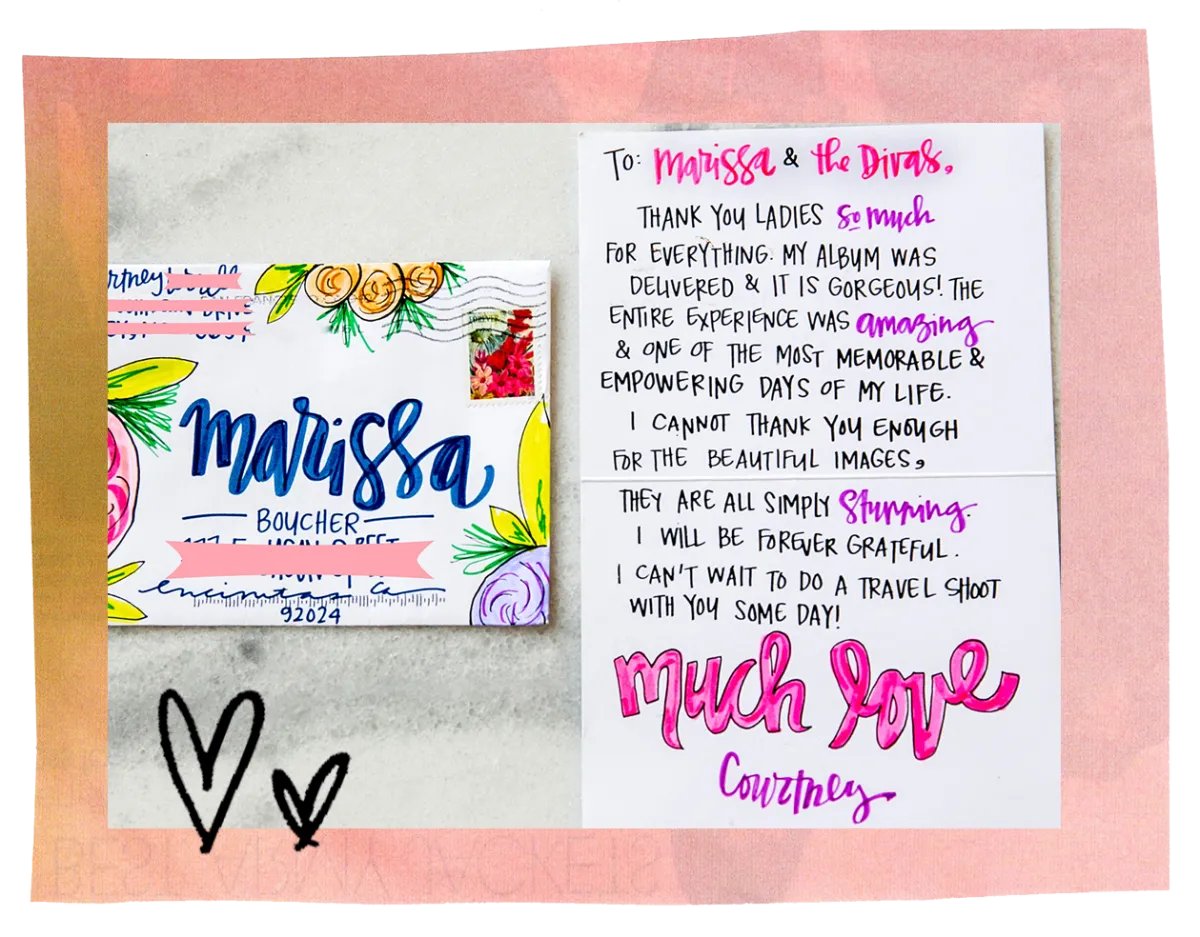 marissa
BOUCHER
encinitas Ca
92024
TO: Marissa & the Divas,
THANK YOU LADIES so much
FOR EVERYTHING. MY ALBUM WAS
DELIVERED & IT IS GORGEOUS! THE
ENTIRE EXPERIENCE WAS amazing
& ONE OF THE MOST MEMORABLE &
EMPOWERING DAYS OF MY LIFE.
I CANNOT THANK YOU ENOUGH
FOR THE BEAUTIFUL IMAGES,
THEY ARE ALL SIMPLY Stunning.
I WILL BE FOREVER GRATEFUL.
I CAN'T WAIT TO DO A TRAVEL SHOOT
WITH YOU SOME DAY!
much love
Courtney